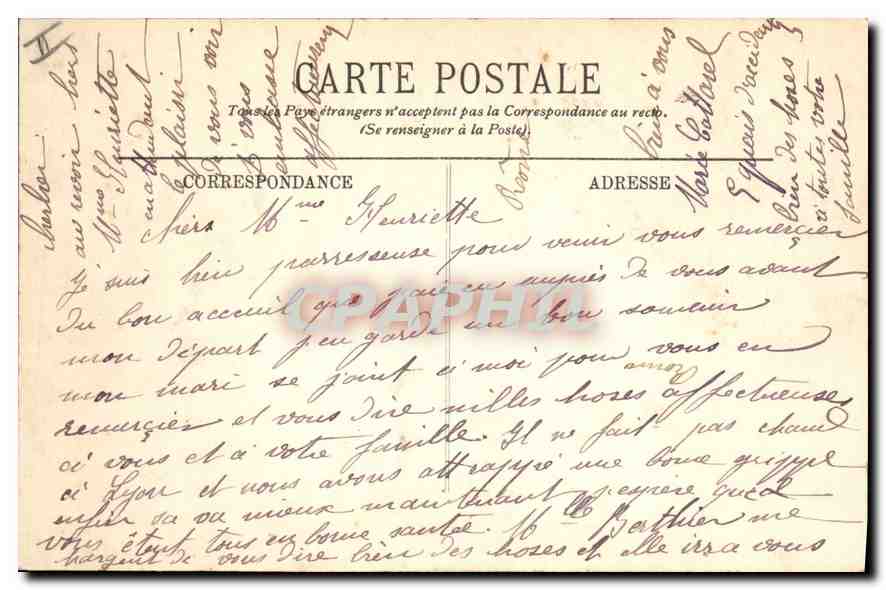 CARTE POSTALE
Tous les Pays étrangers n'acceptent pas la Correspondance au recto.
(Se renseigner à la Poste).
CORRESPONDANCE
ADRESSE
chère Mme Henriette
Je suis bien parresseuse pour venir vous remercier
du bon accueil que j'ai eu auprès de vous avant
mon départ j'en garde un bon souvenir
mon mari se joint à moi pour vous en
remercier et vous dire milles choses affectueuses
à vous et à votre famille. Il ne fait pas chaud
à Lyon et nous avons attrappé une bonne grippe
enfin sa va mieux maintenant j'espère que
vous êtent tous en bonne santé. Mlle Berthier me
chargent de vous dire bien des choses et elle irra vous
au revoir chers
Mme Henriette
en attendant
le plaisir
de vous voir
à vous
bien à vous
Marie
bien des choses
à toutes votre
famille
CPAPHIL